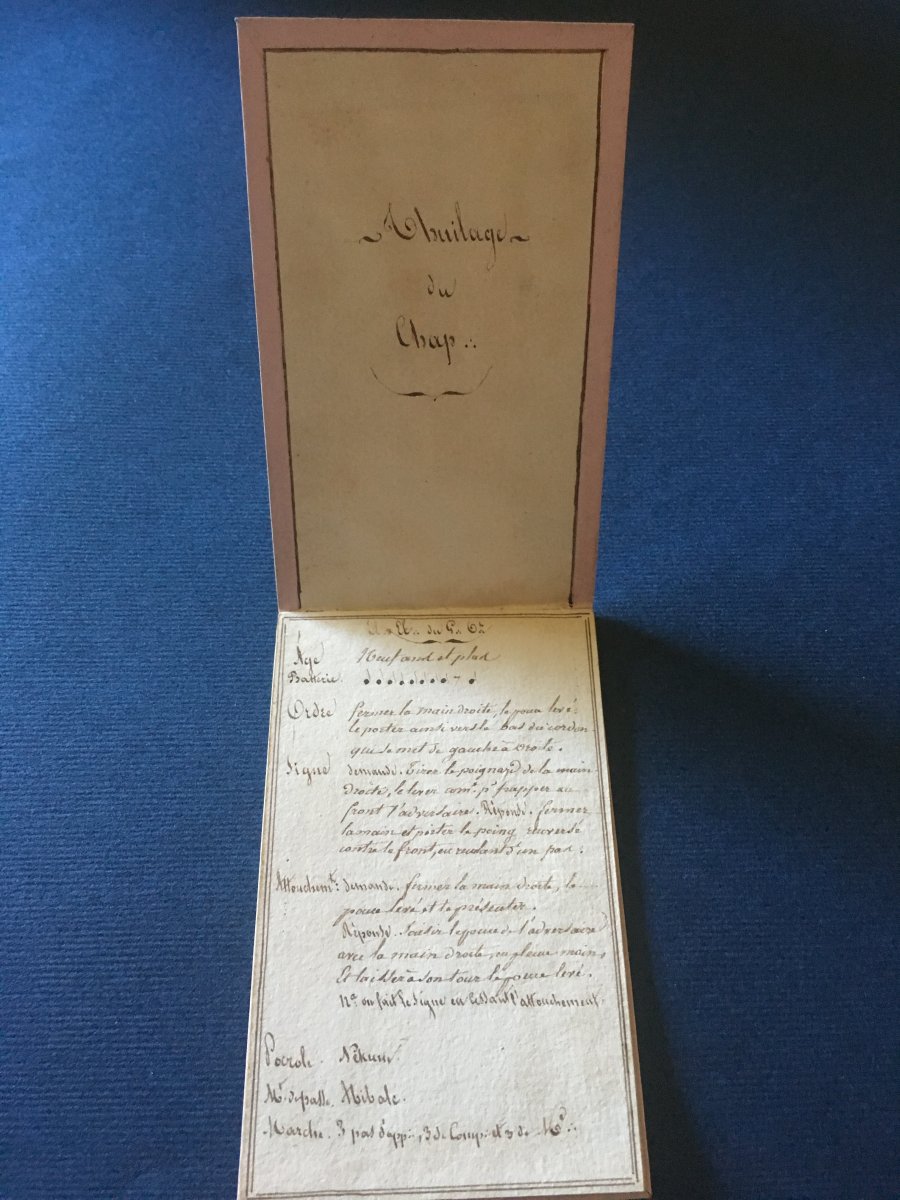 Thuilage
du
Chap∴
du G∴ O∴
Âge Neuf ans et plus
Batterie.
Ordre fermer la main droite, le pouce levé
le porter ainsi vers le bas du cordon
qui se met de gauche à droite.
Signe demande. Tirer le poignard de la main
droite, le lever com.e pr frapper au
front l'adversaire. Réponse. fermer
la main et porter le poing renversé
contre le front, en reculant d'un pas.
Attouchemt. demande. fermer la main droite, le
pouce levé et le présenter.
Réponse. Saisir le pouce de l'adversaire
avec la main droite, en pleine main,
Et laisser à son tour le pouce levé.
on fait le signe en cessant l'attouchement.
Parole. Nékum
Mt. de passe. Stibale.
Marche. 3 pas d'app∴, 3 de Comp∴ et 3 de M∴